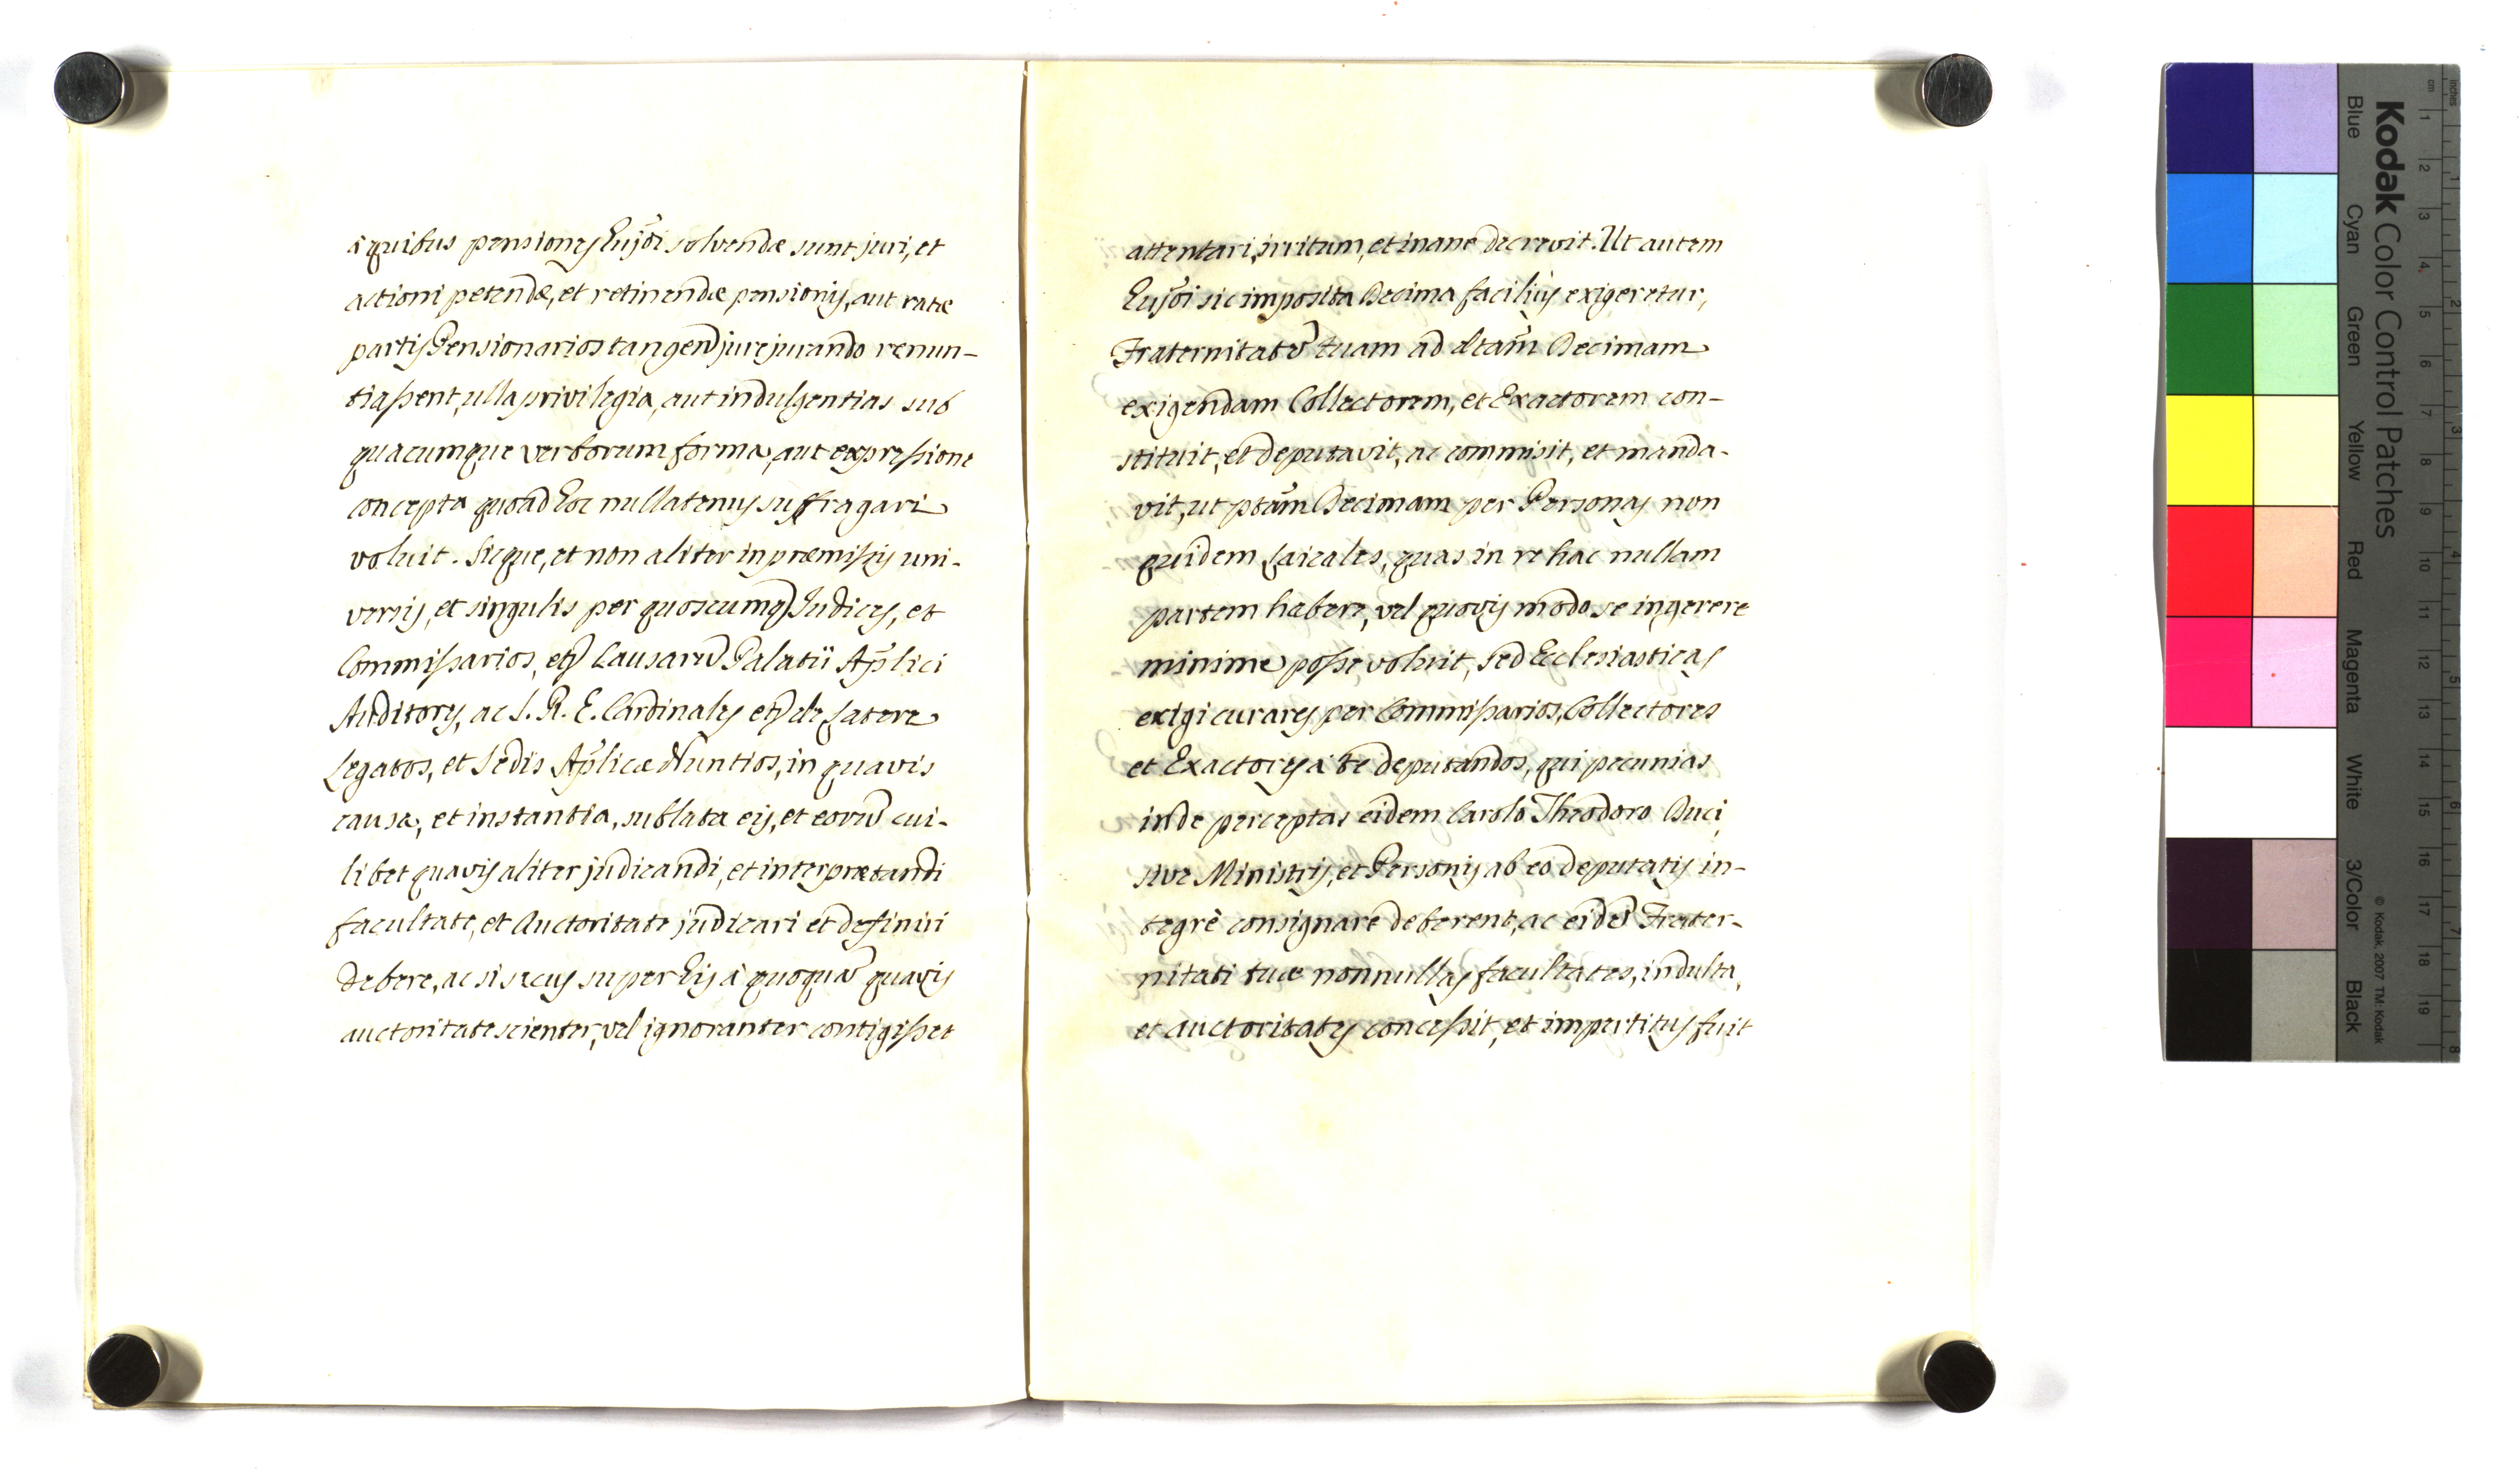 à quibus pensiones hujõi solvendæ sunt juri, et
actioni petendæ, et retinendæ pensionis, aut ratæ
partis Pensionarios tangeñ jurejurando renun-
tiassent, ulla privilegia, aut indulgentias sub
quacumque verborum forma, aut expressione
concepta quoad hoc nullatenus suffragari
voluit. Sicque, et non aliter in præmissis uni-
versis, et singulis per quoscumq̃ Judices, et
Commissarios, etq̃ Causarũ Palatii Ap̃lici
Auditores, ac S. R. E. Cardinales etq̃ de Latere
Legatos, et Sedis Ap̃licæ Nuntios, in quavis
causa, et instantia, sublata eis, et eorũ cui-
libet quavis aliter judicandi, et interpretandi
facultate, et Auctoritate judicari et definiri
debere, ac si secus super his à quoquã quavis
auctoritate scienter, vel ignoranter contigisset
attentari, irritum, et inane decrevit. Ut autem
hujõi sic imposita Decima faciliùs exigeretur,
Fraternitatẽ tuam ad dctam̃ Decimam
exigendam Collectorem, et Exactorem con-
stituit, et deputavit, ac commisit, et manda-
vit, ut ptam̃ Decimam per Personas non
quidem Laicales, quas in re hac nullam
partem habere, vel quovis modo se ingerere
minime posse voluit, sed Ecclesiasticas
exigi curares per Commissarios, Collectores
et Exactores à te deputandos, qui pecunias
inde perceptas eidem Carolo Theodoro Duci,
sive Ministris, et Personis ab eo deputatis in-
tegrè consignare deberent, ac eidẽ Frater-
nitati tuæ nonnullas facultates, indulta,
et auctoritates concessit, et impertitus fuit
Kodak Color Control Patches
Blue Cyan Green Yellow Red Magenta White 3/Color Black
© Kodak, 2007 TM: Kodak
inches 1 2 3 4 5 6 7 8
cm 1 2 3 4 5 6 7 8 9 10 11 12 13 14 15 16 17 18 19